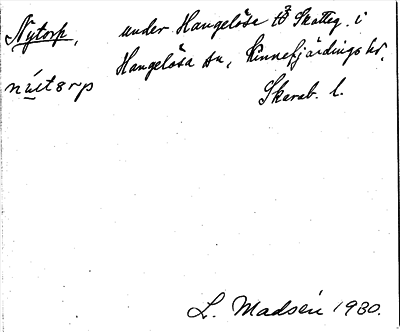 Nytorp, under Hangelösa Skatteg. i
Hangelösa sn, Kinnefjärdings hd,
Skarab. l.
L. Madsén 1930.